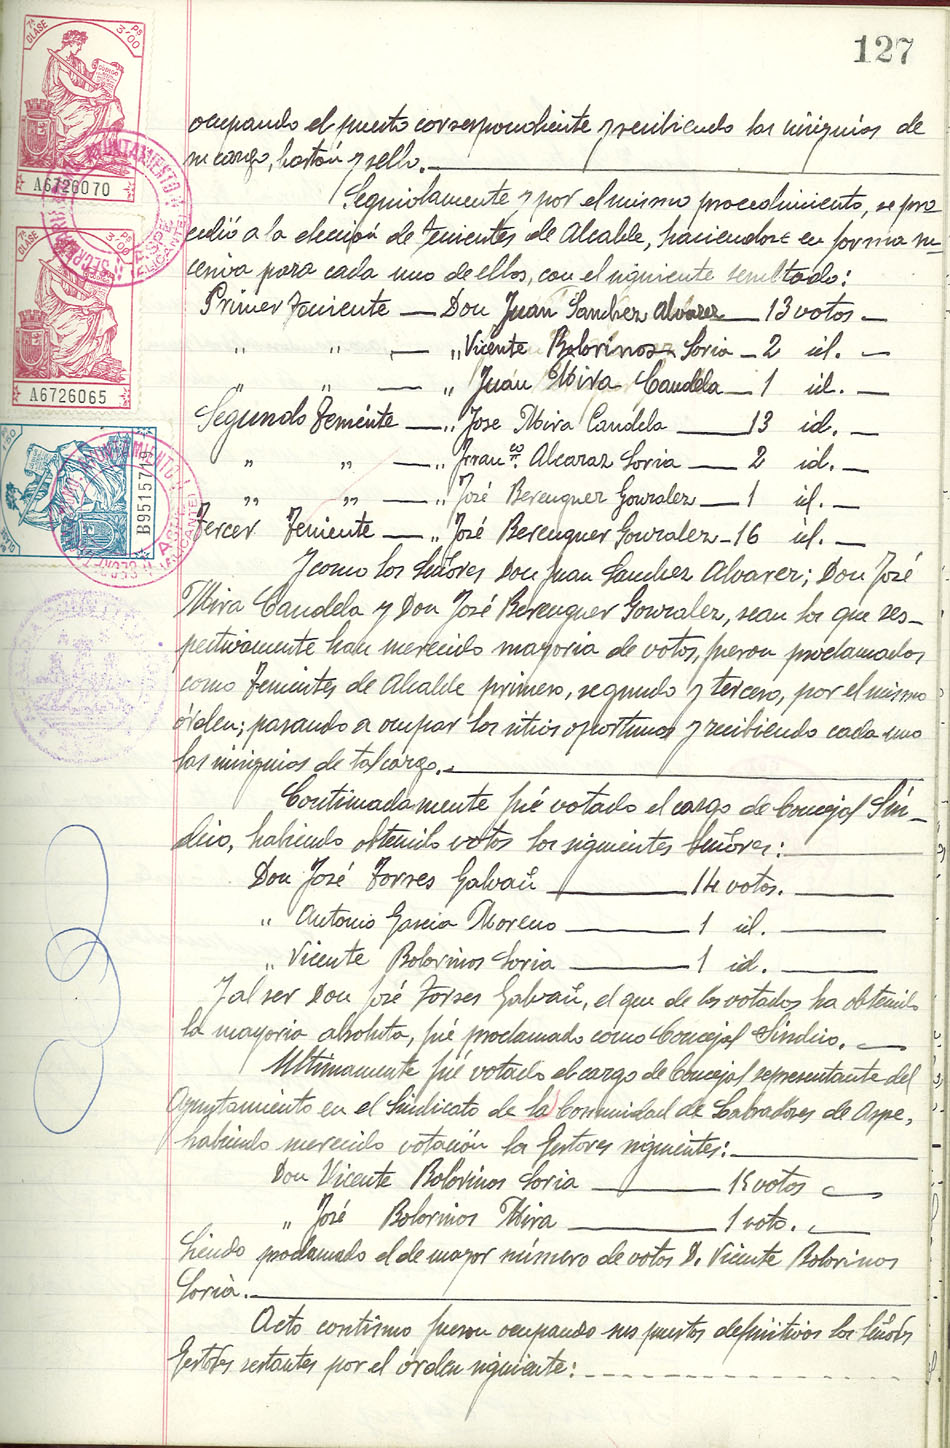 127
7ª CLASE 3'00 Ps
A6726070
7ª CLASE 3'00
A6726065
B9515719
AYUNTAMIENTO
ASPE
(ALICANTE)
ocupando el puesto correspondiente y recibiendo las insignias de
su cargo, bastón y sello.
Seguidamente y por el mismo procedimiento, se pro
cedió a la elección de tenientes de Alcalde, haciendose en forma su-
cesiva para cada uno de ellos, con el siguiente resultado:
Primer Teniente — Don Juan Sanchez Alvarez — 13 votos —
" " — " Vicente Bolorinos Soria — 2 id. —
" " — " Juan Mira Candela — 1 id. —
Segundo Teniente — " Jose Mira Candela — 13 id. —
" " — " Franco. Alcaraz Soria — 2 id. —
" " — " José Berenguer Gonzalez — 1 id. —
Tercer Teniente — " José Berenguer Gonzalez — 16 id. —
Y como los Señores Don Juan Sanchez Alvarez; Don José
Mira Candela y Don José Berenguer Gonzalez, sean los que res-
pectivamente han merecido mayoria de votos, fueron proclamados
como Tenientes de Alcalde primero, segundo y tercero, por el mismo
órden; pasando a ocupar los sitios oportunos y recibiendo cada uno
las insignias de tal cargo.
Continuadamente fué votado el cargo de Concejal Sín-
dico, habiendo obtenido votos los siguientes Señores:
Don José Torres Galvañ — 14 votos. —
" Antonio Garcia Moreno — 1 id. —
" Vicente Bolorinos Soria — 1 id. —
Y al ser Don José Torres Galvañ, el que de los votados ha obtenido
la mayoria absoluta, fué proclamado como Concejal Síndico.
Ultimamente fué votado el cargo de Concejal representante del
Ayuntamiento en el Sindicato de la Comunidad de Labradores de Aspe,
habiendo merecido votación los Gestores siguientes:
Don Vicente Bolorinos Soria — 15 votos
" José Bolorinos Mira — 1 voto.
Siendo proclamado el de mayor número de votos D. Vicente Bolorinos
Soria.
Acto contínuo fueron ocupando sus puestos definitivos los Señores
Gestores restantes por el órden siguiente: